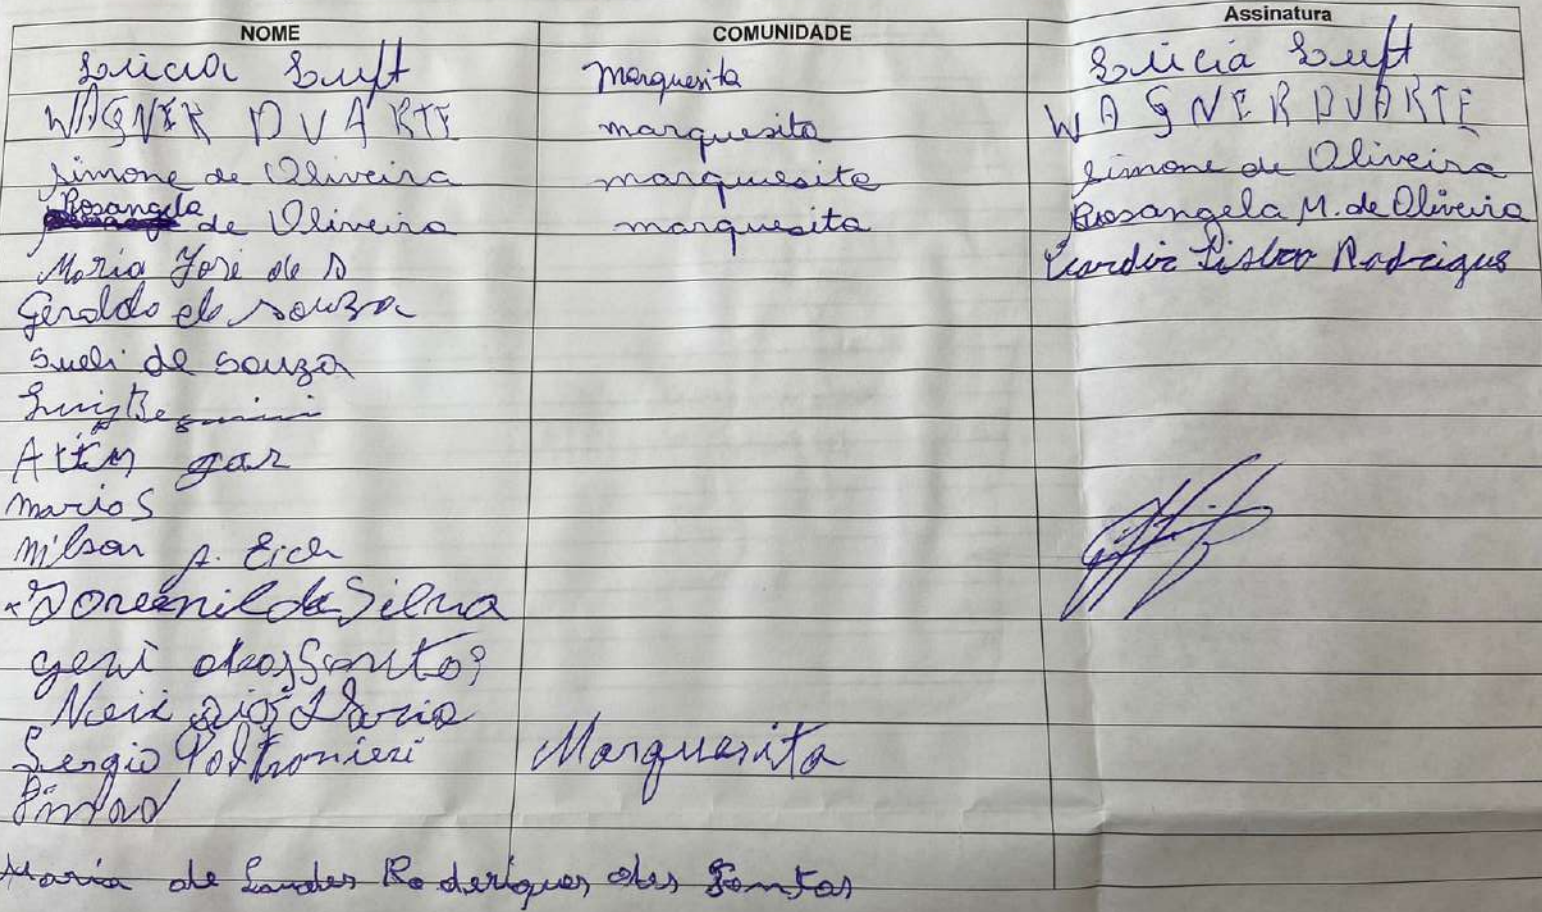 NOME COMUNIDADE Assinatura
Lúcia Luft Marquesita Lúcia Luft
WAGNER DUARTE marquesita WAGNER DUARTE
Simone de Oliveira marquesita Simone de Oliveira
Rosangela de Oliveira marquesita Rosangela M. de Oliveira
Maria José de S Lisboa Rodrigues
Geraldo de Souza
Sueli de Souza
Luiz
gar
Mario S
Nilson A. Eich
da Silva
geni dos Santos
Maria
Sergio Poltronieri Marquesita
Maria de Lourdes Roderigues dos Santos